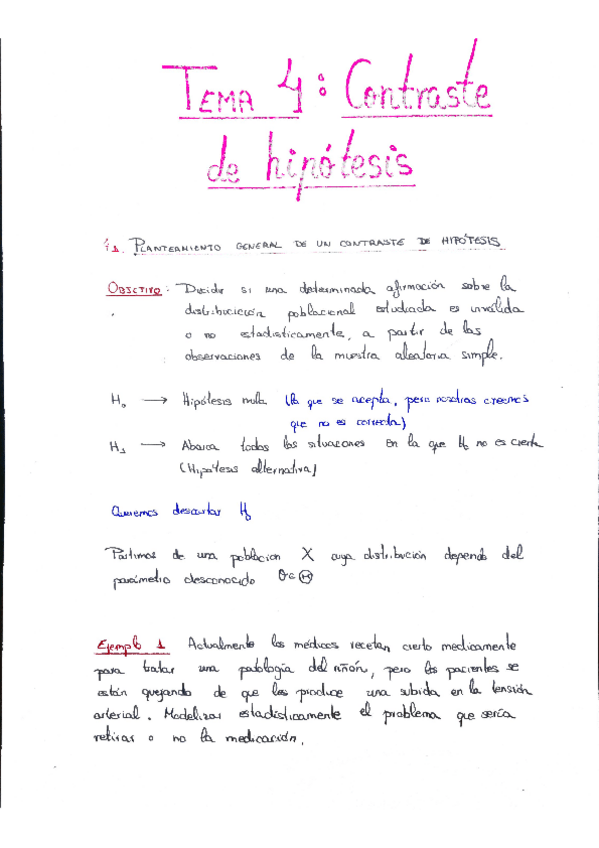 TEMA 4: Contraste
de hipótesis
4.1. PLANTEAMIENTO GENERAL DE UN CONTRASTE DE HIPÓTESIS
OBJETIVO: Decidir si una determinada afirmación sobre la
distribucición poblacional estudiada es inválida
o no estadísticamente, a partir de las
observaciones de la muestra aleatoria simple.
H₀ → Hipótesis nula (la que se acepta, pero nosotros creemos
que no es correcta)
H₁ → Abarca todas las situaciones en la que H₀ no es cierta
(Hipótesis alternativa)
Queremos descartar H₀
Partimos de una población X cuya distribución depende del
parámetro desconocido θ∈Θ
Ejemplo 1 Actualmente los médicos recetan cierto medicamento
para tratar una patología del riñón, pero los pacientes se
están quejando de que les produce una subida en la tensión
arterial. Modelizar estadísticamente el problema que sería
retirar o no la medicación.